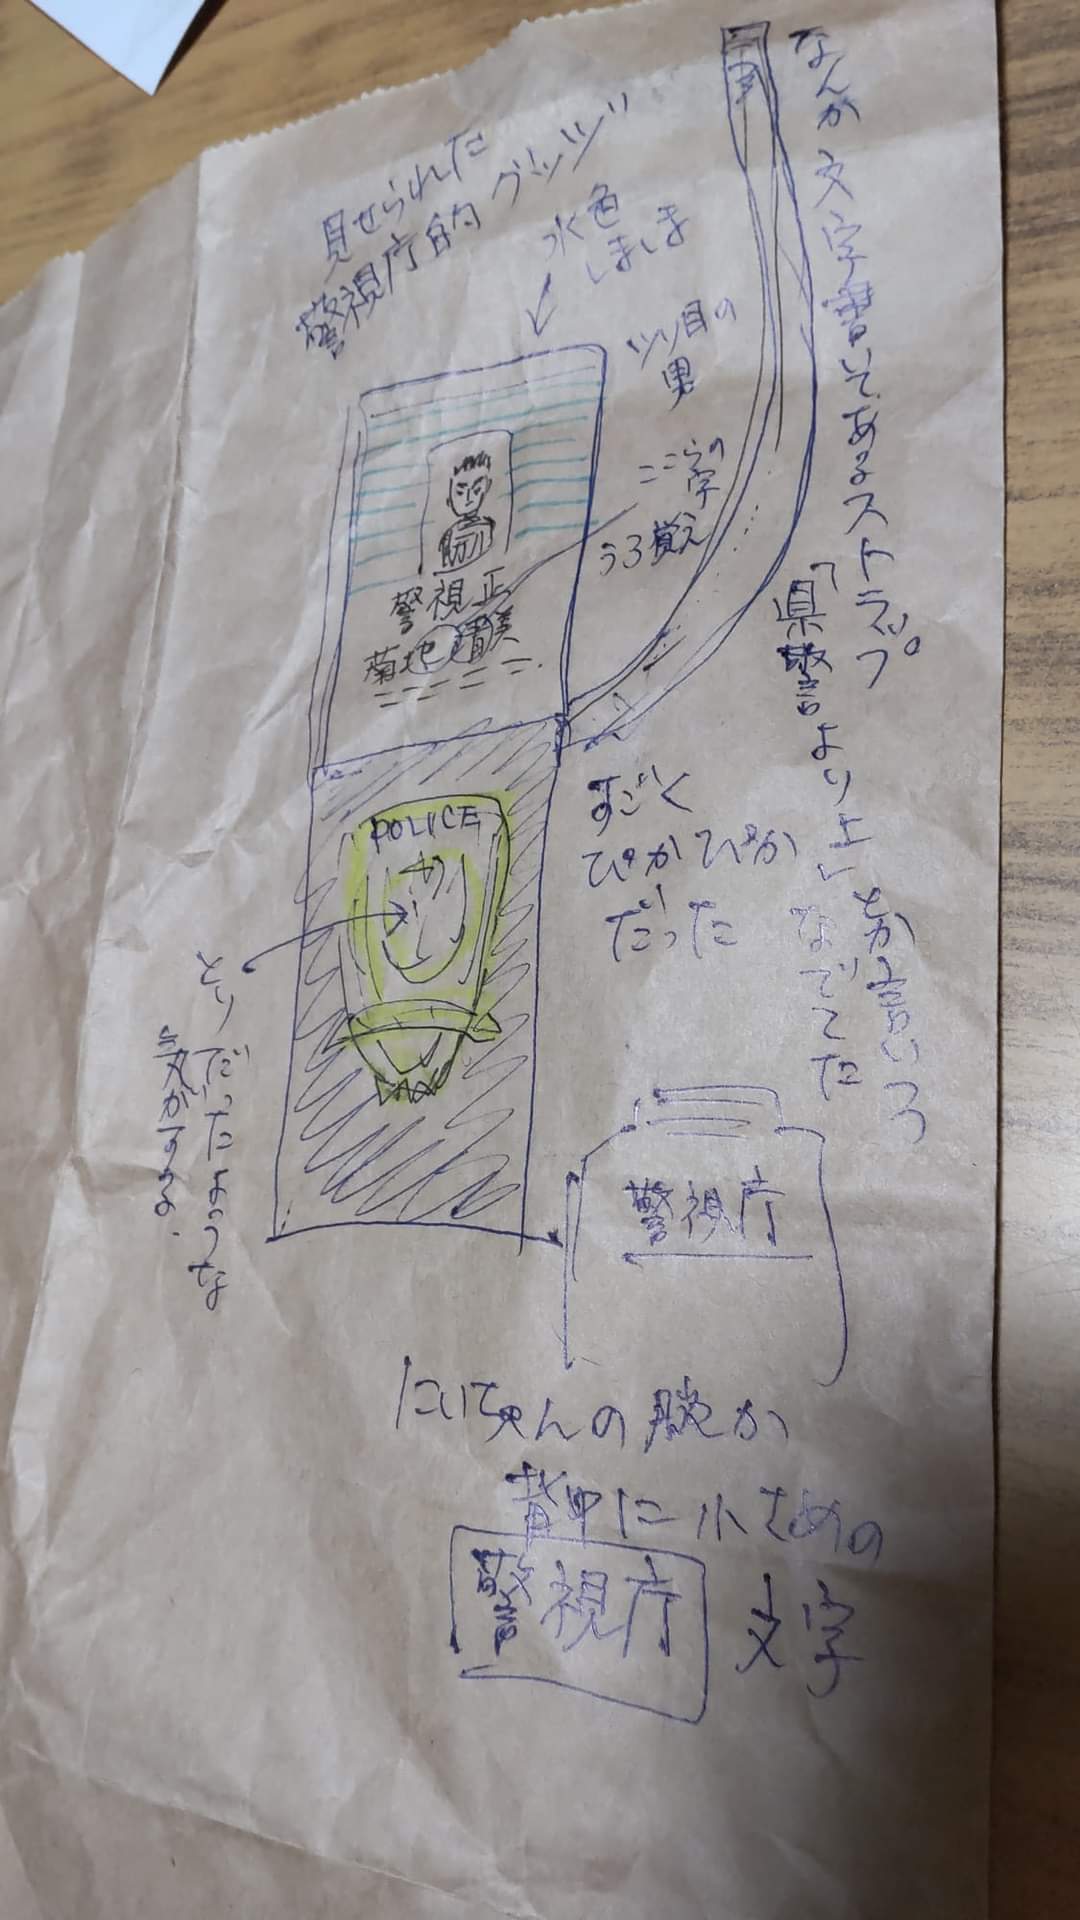 見せられた
警視庁的グッツ"
水色
しましま
ツリ目の
男
ここらの
字
うろ覚え
なんか文字書いてあるストラップ
「県警より上」とか言いつつ
なでてた
警視正
菊地 美
すごく
ぴかぴか
だった
POLICE
とりだったような
気がする。
警視庁
にいちゃんの腕か
背中に小さめの
文字
警視庁